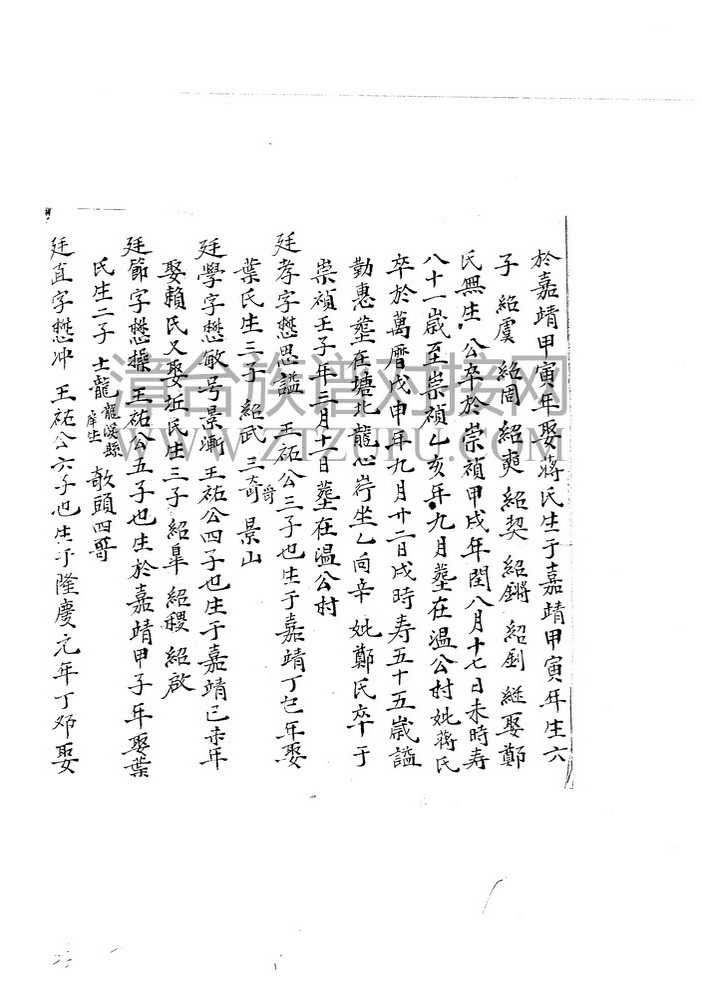 於嘉靖甲寅年娶蔣氏生于嘉靖甲寅年生六
子 紹虞 紹周 紹奭 紹契 紹鏘 紹釗 継娶鄭
氏無生 公卒於崇禎甲戌年閏八月十七日未時寿
八十一歲至崇禎乙亥年九月塟在温公村妣蔣氏
卒於萬曆戊申年九月廿二日戌時寿五十五歲謚
勤惠塟在塘北龍心崎坐乙向辛 妣鄭氏卒于
崇禎壬子年三月十一日塟在温公村
廷孝字懋思謚 王祐公三子也生于嘉靖丁巳年娶
葉氏生三子 紹武 三奇爵 景山
廷學字懋敏号景漸王祐公四子也生于嘉靖己未年
娶賴氏又娶坵氏生三子 紹皐 紹稷 紹啟
廷節字懋操 王祐公五子也生於嘉靖甲子年娶葉
氏生二子 士龍龍溪縣庠生 欹頭四哥
廷直字懋冲 王祐公六子也生于隆慶元年丁卯娶
漳台族谱对接网
WWW.ZTZUPU.COM